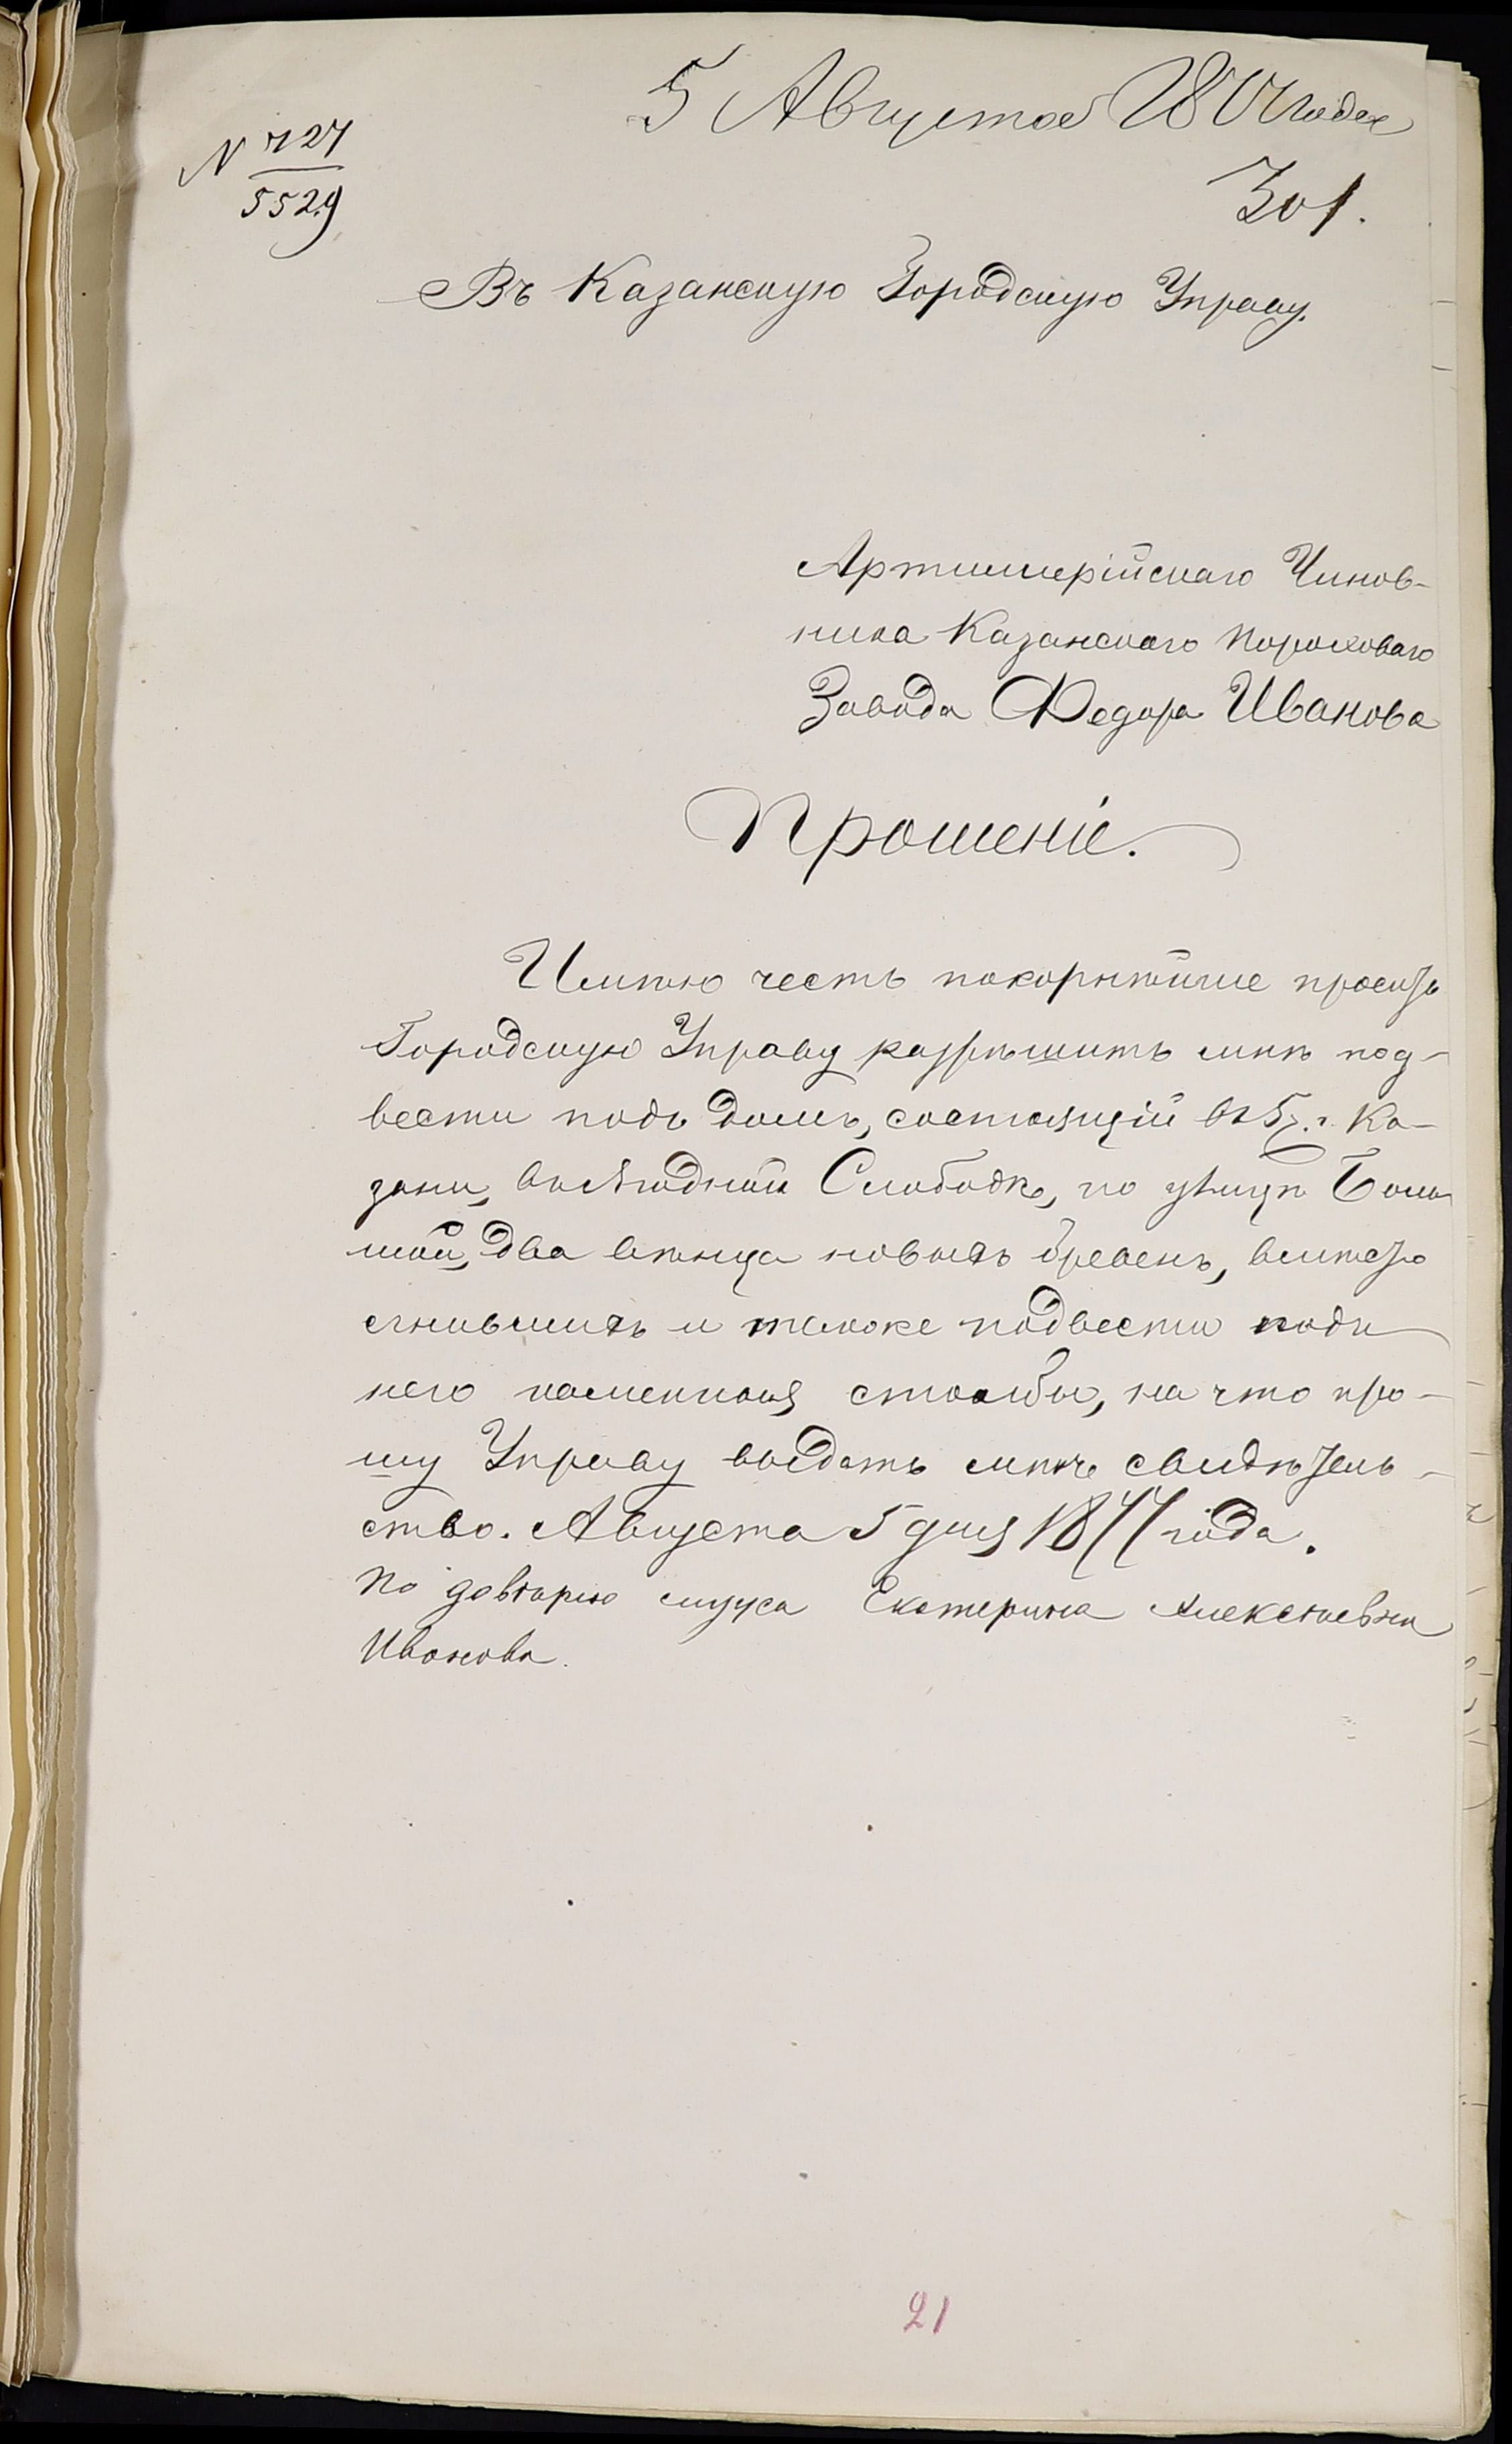 5 Августа 1877 года
N 727
5529
301.
Въ Казанскую Городскую Управу.
Артиллерійскаго Чинов-
ника Казанскаго Пороховаго
Завода Федора Иванова
Прошеніе.
Имѣю честь покорнѣйше просить
Городскую Управу разрѣшить мнѣ под-
вести подъ домъ, состоящій въ 5 ч. г. Ка-
зани, въ Ягодной Слободкѣ, по улицѣ Боль-
шой, два вѣнца новыхъ бревенъ, вмѣсто
сгнившихъ и также подвести подъ
него каменныя столбы, на что про-
шу Управу выдать мнѣ свидѣтель-
ство. Августа 5 дня 1877 года.
По довѣрію мужа Екатерина Алексѣевна
Иванова.
21